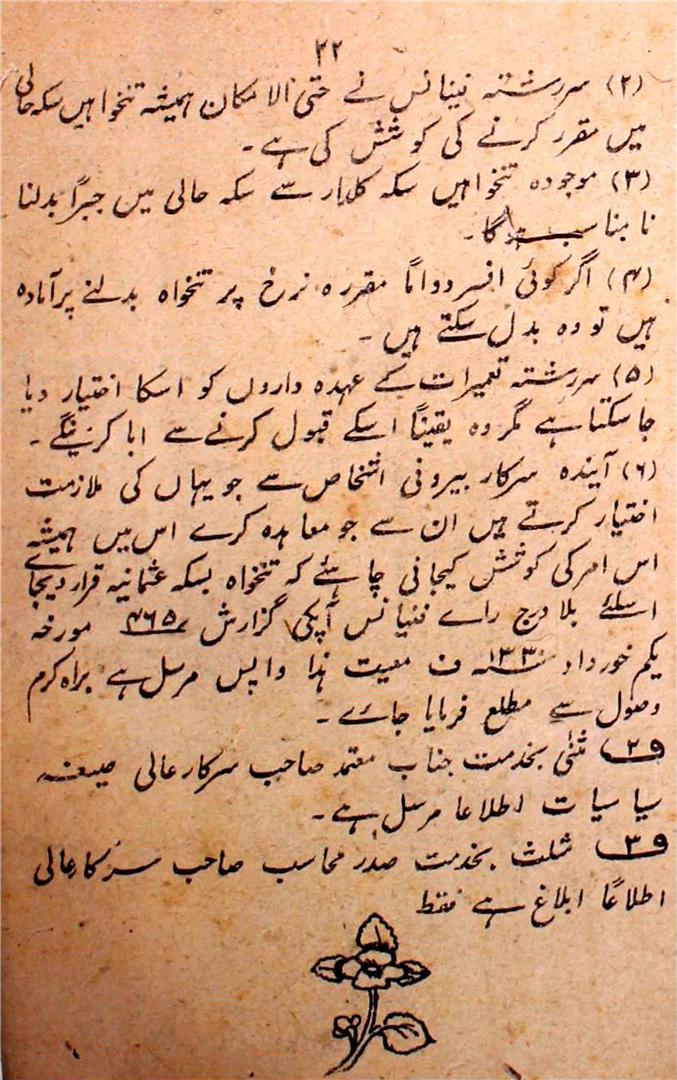 ۲۲
(۲) سررشتہ فینانس نے حتی الامکان ہمیشہ تنخواہیں سکہ حالی
میں مقرر کرنے کی کوشش کی ہے۔
(۳) موجودہ تنخواہیں سکہ کلدار سے سکہ حالی میں جبراً بدلنا
نامناسب ہوگا۔
(۴) اگر کوئی افسر دواماً مقررہ نرخ پر تنخواہ بدلنے پر آمادہ
ہیں تو وہ بدل سکتے ہیں۔
(۵) سررشتہ تعمیرات کے عہدہ داروں کو اسکا اختیار دیا
جاسکتا ہے مگر وہ یقیناً اسکے قبول کرنے سے ابا کرینگے۔
(۶) آیندہ سرکار بیرونی اشخاص سے جو یہاں کی ملازمت
اختیار کرتے ہیں ان سے جو معاہدہ کرے اس میں ہمیشہ
اس امر کی کوشش کیجانی چاہئے کہ تنخواہ بسکہ عثمانیہ قرار دیجائے
اسلئے بلا درج رائے فینانس آپکی گزارش ۴۶۵ مورخہ
یکم خورداد ۱۳۳۰ ف معیت ہذا واپس مرسل ہے براہ کرم
وصول سے مطلع فرمایا جاے۔
ف۲ مثنیٰ بخدمت جناب معتمد صاحب سرکار عالی صیغہ
سیاسیات اطلاعا مرسل ہے۔
ف۳ مثلث بخدمت صدر محاسب صاحب سرکار عالی
اطلاعاً ابلاغ ہے فقط